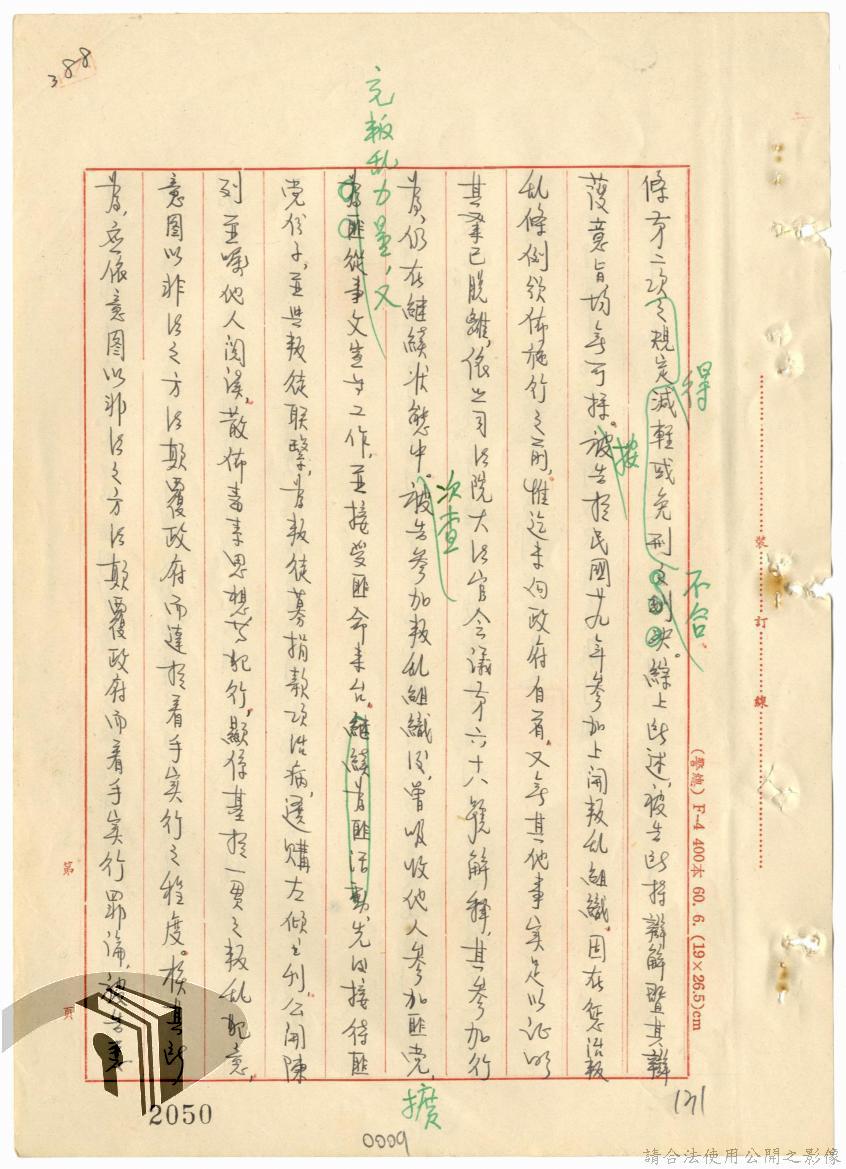 388
條第二次之規定減輕或免刑之判決。綜上所述，被告所持辯解暨其辯
得
不合、
護意旨均無可採。被告於民國廿九年參加上開叛乱組織，固在惩治叛
按
乱條例頒佈施行之前，惟迄未向政府自首，又無其他事实足以证明
其業已脱離，依照司法院大法官会議第六十八號解释，其參加行
為，仍在継續状態中。被告参加叛乱組織後，曾吸收他人參加匪党，
次查
擴
充叛乱力量，又
為匪從事文宣工作，並接受匪命来台，継續為匪活動，先後接待匪
党份子，並與叛徒联繫，為叛徒募捐款项治病，選購左傾書刊，公開陳
列並嘱他人閲读，散佈毒素思想等犯行，顯係基於一贯之叛乱犯意，
意图以非法之方法颠覆政府而達於着手实行之程度。核其所
為，应依意图以非法之方法颠覆政府而着手实行罪論，被告
第 頁
裝 訂 線
(警總) F-4 400本 60. 6. (19×26.5)cm
131
2050
0009
請合法使用公開之影像